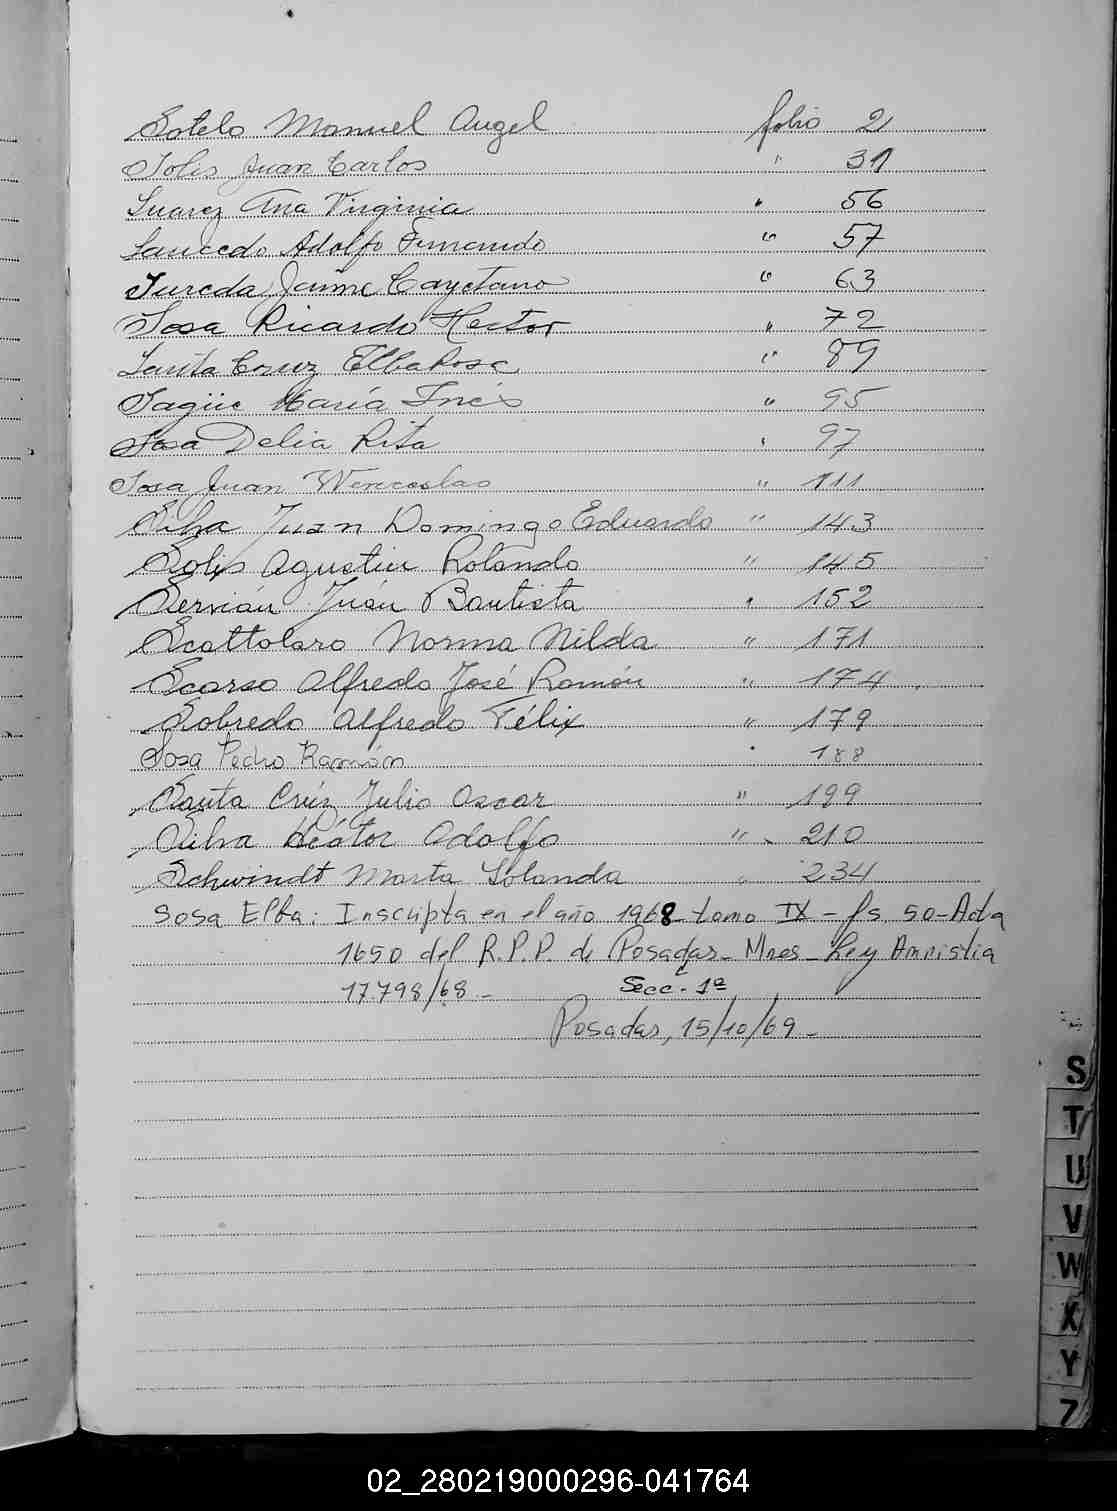 Sotelo Manuel Angel folio 2
Solis Juan Carlos " 31
Suarez Ana Virginia " 56
Saucedo Adolfo Fernando " 57
Sureda Jaime Cayetano " 63
Sosa Ricardo Hector " 72
Santa Cruz Elba Rosa " 89
Sagüe María Inés " 95
Sosa Delia Rita " 97
Sosa Juan Wenceslao " 111
Silva Juan Domingo Eduardo " 143
Solis Agustin Rolando " 145
Servián Juan Bautista " 152
Scottolaro Norma Nilda " 171
Scorso Alfredo José Ramón " 174
Sobredo Alfredo Félix " 179
Sosa Pedro Ramón " 188
Santa Crúz Julio Oscar " 199
Silva Héctor Adolfo " 210
Schwindt Marta Yolanda " 234
Sosa Elba: Inscripta en el año 1968 - tomo IX - fs 50 - Acta
1650 del R.P.P. de Posadas - Mnes - Ley Amnistia
17.798/68 - Secc. 1ª
Posadas, 15/10/69 -
S
T
U
V
W
X
Y
Z
02_280219000296-041764